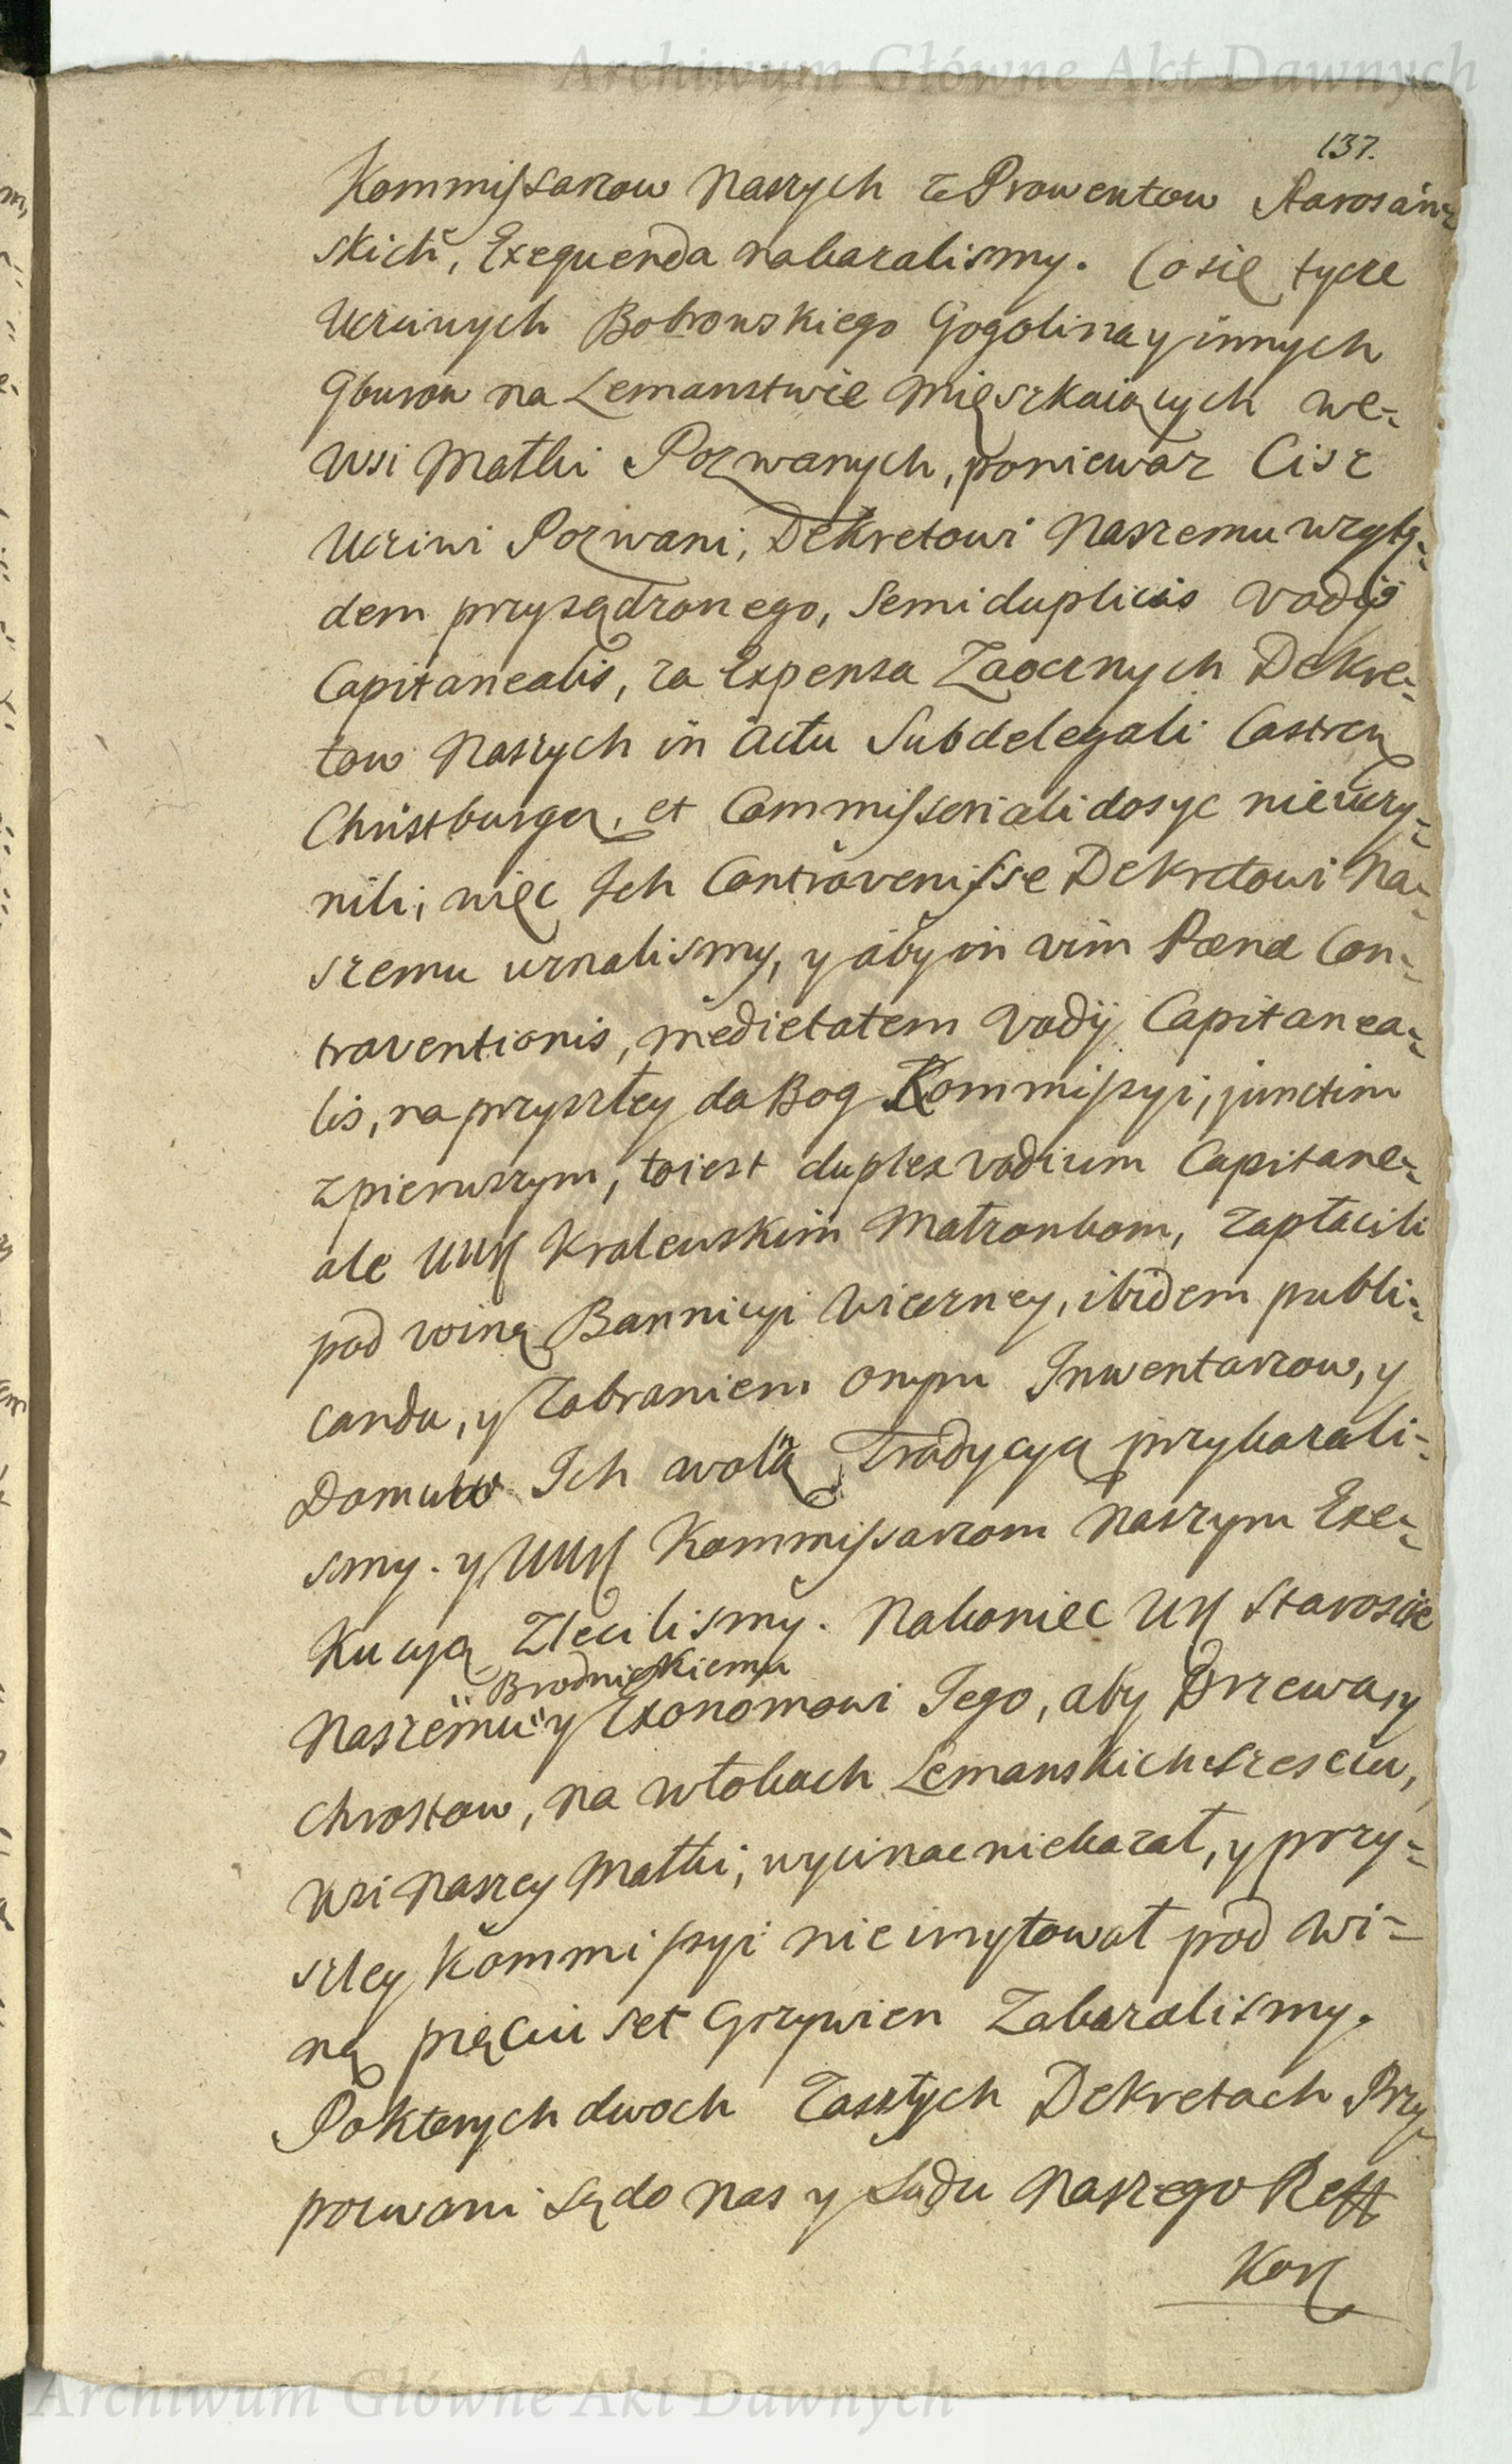 Archiwum Główne Akt Dawnych
137.
Kommissarzow Naszych z Prowentow Starosciń
skich, Exequenda nakazalismy. Co się tycze
Uczciwych Bobrowskiego Gogolina y innych
Gburow na Lemanstwie Mięszkaiących we-
Wsi Matki Pozwanych, poniewaz Cisz
Uczciwi Pozwani, Dekretowi Naszemu wzglę-
dem przysądzonego, Semiduplicis Vadij
Capitanealis, za Expensa Zaocznych Dekre-
tow Naszych in Actu Subdelegali Castren
Christburgen, et Commissoriali dosyc nieuczy-
nili; więc Ich Contravenisse Dekretowi Na-
szemu uznalismy, y aby in vim Pænæ Con-
traventionis, medietatem Vadij Capitanea-
lis, na przyszłey da Bog Kommissyi, junctim
z pierwszym, toiest duplex vadium Capitane-
ale UUR Kralewskim Matzonkom, zapłacili
pod winą Bannicyi Wieczney, ibidem publi-
canda, y Zabraniem onym Inwentarzow, y
Domow Ich wolą Tradycyą przykazali-
smy. y UUR Kommissarzom Naszym Exe-
kucyą Zlecilismy. Nakoniec UR Staroscie
Brodnickiemu
Naszemu y Ekonomowi Jego, aby Drzewa, y
Chrostow, na włokach Lemanskich szesciu,
Wsi Naszey Matki, wycinac niekazał, y przy-
szłey Kommissyi nie irrytował pod wi-
ną pięciu set Grzywien Zakazalismy.
Poktorych dwoch Zaszłych Dekretach Przy
pozwani są do Nas y Sądu Naszego Reff
Kor
Archiwum Główne Akt Dawnych